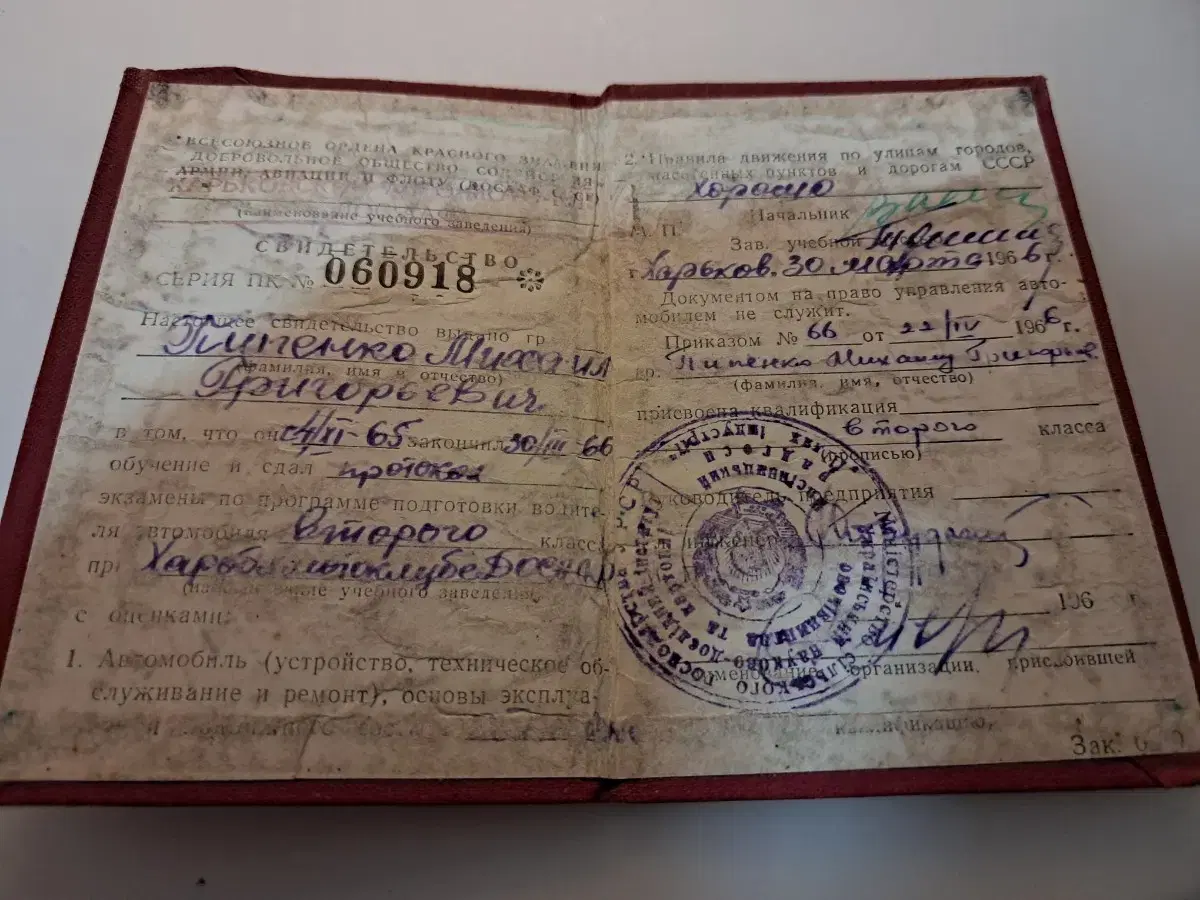 ВСЕСОЮЗНОЕ ОРДЕНА КРАСНОГО ЗНАМЕНИ
ДОБРОВОЛЬНОЕ ОБЩЕСТВО СОДЕЙСТВИЯ
АРМИИ, АВИАЦИИ И ФЛОТУ (ДОСААФ СССР)
(наименование учебного заведения)
СВИДЕТЕЛЬСТВО
СЕРИЯ ПК № 060918
Настоящее свидетельство выдано гр.
Пипенко Михаил
(фамилия, имя и отчество)
Григорьевич
в том, что он 4/XI-65 закончил 30/III-66
обучение и сдал
экзамены по программе подготовки водите-
ля автомобиля второго класса
при
(наименование учебного заведения)
с оценками:
1. Автомобиль (устройство, техническое об-
служивание и ремонт), основы эксплуа-
2. Правила движения по улицам городов,
населенных пунктов и дорогам СССР
хорошо
Начальник
М. П.
Зав. учебной
г. Харьков. 30 марта 1966 г.
Документом на право управления авто-
мобилем не служит.
Приказом № 66 от 22/IV 1966 г.
гр. Пипенко Михаилу Григорьев.
(фамилия, имя, отчество)
присвоена квалификация
второго класса
(прописью)
Руководитель предприятия
инженер
196 г.
наименование организации, присвоившей
квалификацию,
Зак.